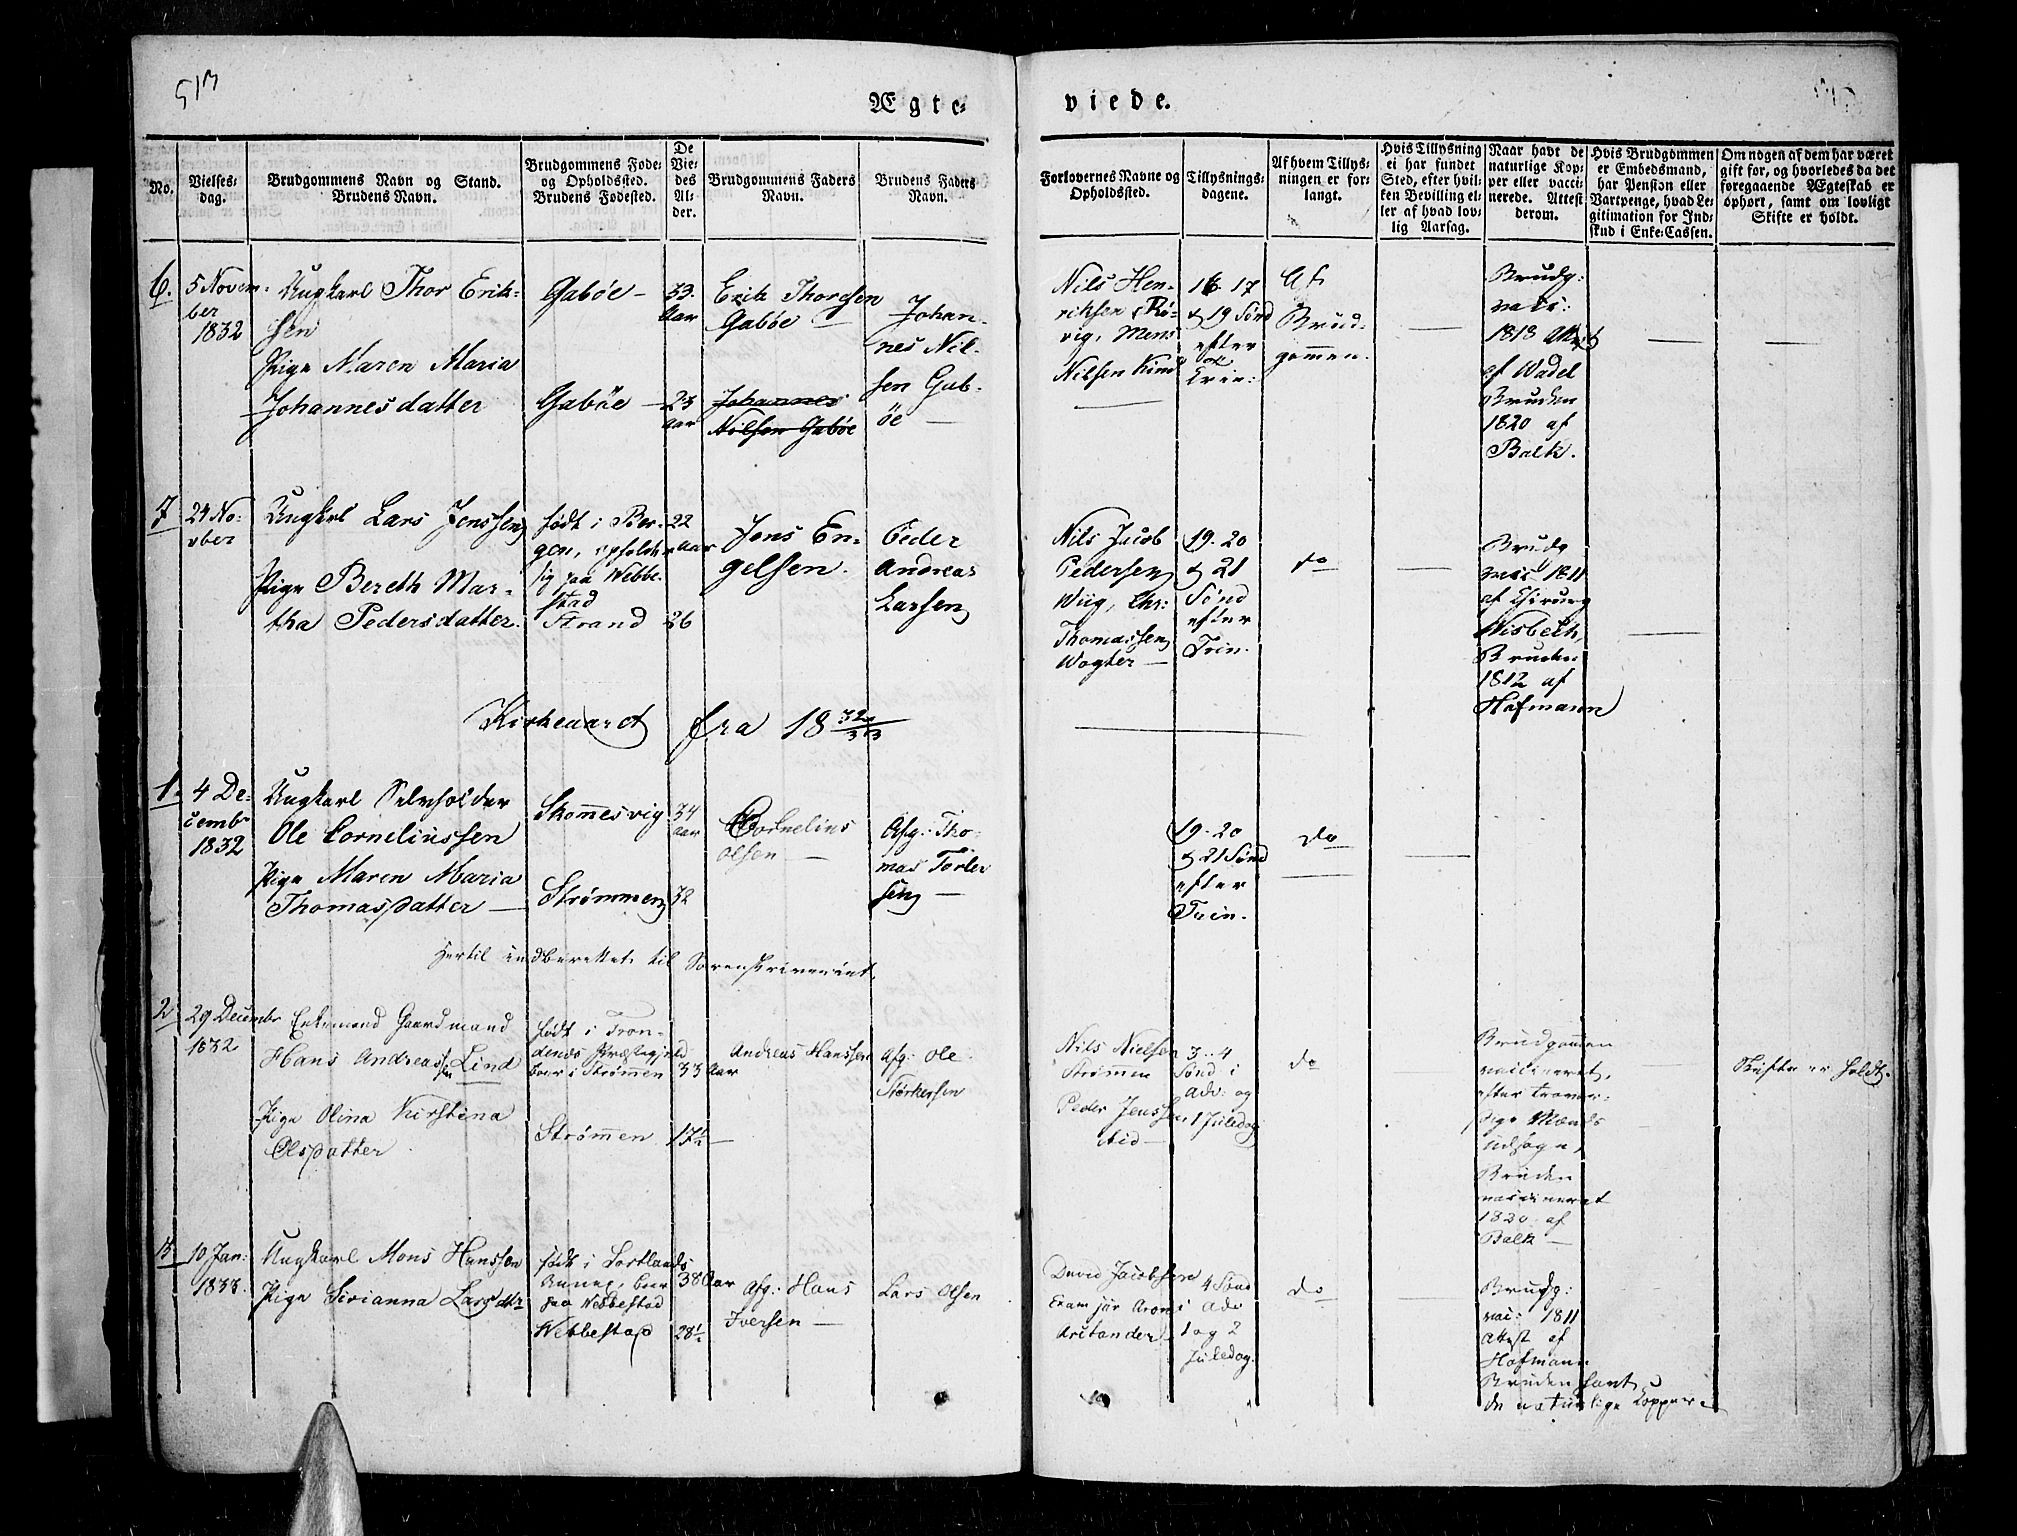 513
Ægte-
viede.
No.
Vielses-
dag.
Brudgommens Navn og Stand.
Brudens Navn.
Brudgommens Føde-
og Opholdssted.
Brudens Fødested.
De
Vie-
des
Al-
der.
Brudgommens Faders
Navn.
Brudens Faders
Navn.
Forlovernes Navne og
Opholdssted.
Tillysnings-
dagene.
Af hvem Tillys-
ningen er for-
langt.
Hvis Tillysning
ei har fundet
Sted, efter hvil-
ken Bevilling el-
ler af hvad lov-
lig Aarsag.
Naar havt de
naturlige Kop-
per eller vacci-
nerede. Attest
derom.
Hvis Brudgommen
er Embedsmand,
har Pension eller
Vartpenge, hvad Le-
gitimation for Ind-
skud i Enke-Cassen.
Om nogen af dem har været
gift for, og hvorledes da det
foregaaende Ægteskab er
ophørt, samt om lovligt
Skifte er holdt.
6.
5 Novem-
ber
1832
Ungkarl Thor Erik-
sen
Pige Maren Maria
Johannesdatter
Gabøe -
Gabøe -
33
Aar
23
Aar
Erik Thordsen
Gabøe
Johannes
Nilsen Gabøe
Johan-
nes Nil-
sen Gab-
øe
Nils Hen-
riksen
vig, Mons
Nilsen
16. 17
& 19 Sønd
efter
Trin:
Af
Brud-
gommen.
Brudg:
vacc:
1818 Attest
af Wadel
Bruden
1820 af
Balk.
7
24 No-
vber
Ungkarl Lars Jenssen
Pige Bereth Mar-
tha Pedersdatter.
født i Ber-
gen, opholder
sig paa Webbe-
stad
Strand
22
Aar
26
Jens En-
gelsen.
Peder
Andreas
Larsen
Nils Jacob
Pedersen
Wiig, Chr:
Thomassen
Wogter
19. 20
& 21
Sønd
efter
Trin.
do
Brudg
vacc 1811
af Chirurg
Nisbeth,
Bruden
1812 af
Hofmann
Kirkeaaret fra 18 32/33
1.
4 De-
cembr
1832
Ungkarl Selveholder
Ole Corneliussen
Pige Maren Maria
Thomasdatter
Skonesvig
Strømmen
34
Aar
32
Cornelius
Olsen
Afg: Tho-
mas Torler
sen
19. 20
& 21 Sønd
efter
Trin.
do
Hertil indberettet til Sorenskriveriet.
2
29 Decembr
1832
Enkemand Gaardmand
Hans Andreassen Lind
Pige Olina Kirstina
Olsdatter
født i Tron-
denæs Præstegjeld
boer i Strømmen
Strømmen
33 Aar
17½
Andreas Hanssen
Afg: Ole
Størkersen
Nils Nielsen
Strømmen
Peder Jenssen
Eid
3. 4
Sønd i
Adv: og
1 Juledag
do
Brudgommen
vaccineret,
efter troevær-
dige Mænds
Udsagn,
Bruden
vaccineret
1820 af
Balk
Skifte er holdt.
3
10 Jan:
1833.
Ungkarl Mons Hanssen
Pige Sirianna Larsdtr
født i Sortlands
Annex, boer
paa Webbestad
Webbestad
38 Aar
28½
Afg: Hans
Iversen
Lars Olsen
David Jacobsen
Aron
4 Sønd
i Adv
1 og 2
Juledag.
do
Brudg:
vacc: 1811
Attest af
Hofmann
Bruden havt
de naturlige Kopper